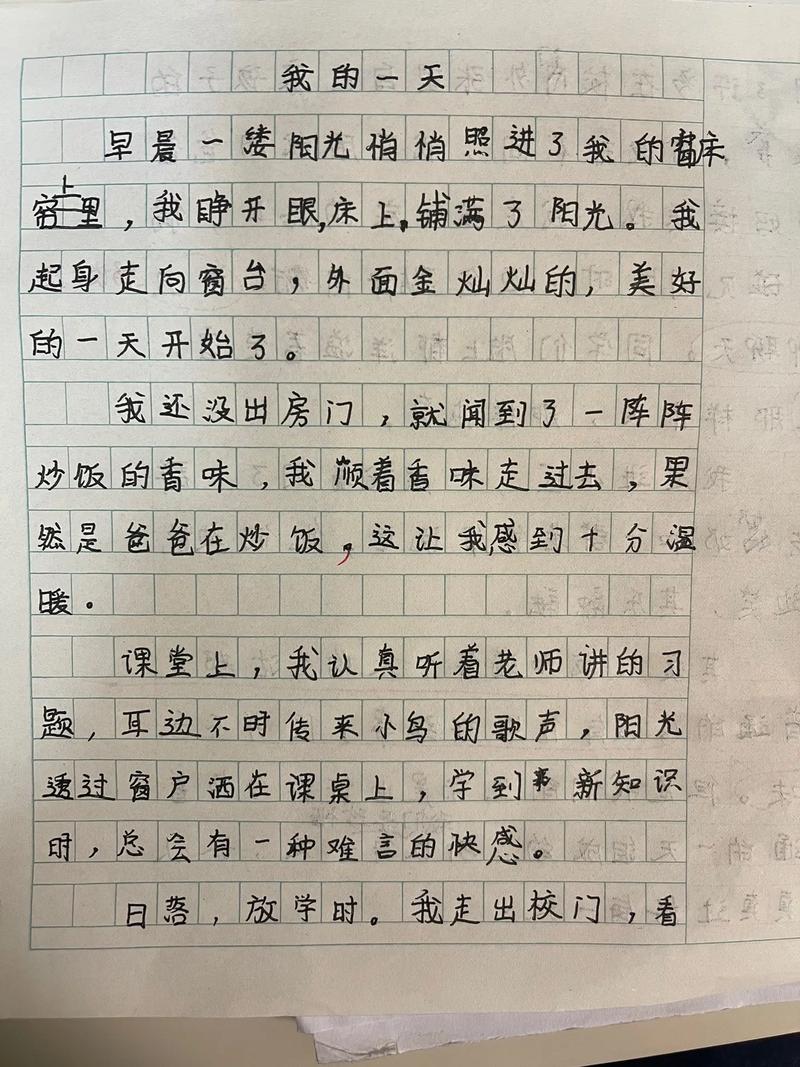 我的一天
早晨一缕阳光悄悄照进了我的床
上，我睁开眼,床上,铺满了阳光。我
起身走向窗台，外面金灿灿的，美好
的一天开始了。
我还没出房门，就闻到了一阵阵
炒饭的香味，我顺着香味走过去，果
然是爸爸在炒饭，这让我感到十分温
暖。
课堂上，我认真听着老师讲的习
题，耳边不时传来小鸟的歌声，阳光
透过窗户洒在课桌上，学到新知识
时，总会有一种难言的快感。
日落，放学时。我走出校门，看